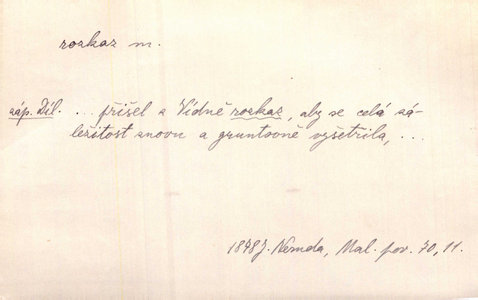 rozkaz m.
záp. Díl. ... přišel z Vídně rozkaz, aby se celá zá-
ležitost znovu a gruntovně vyšetřila, ...
1878 J. Neruda, Mal. pov. 70, 11.